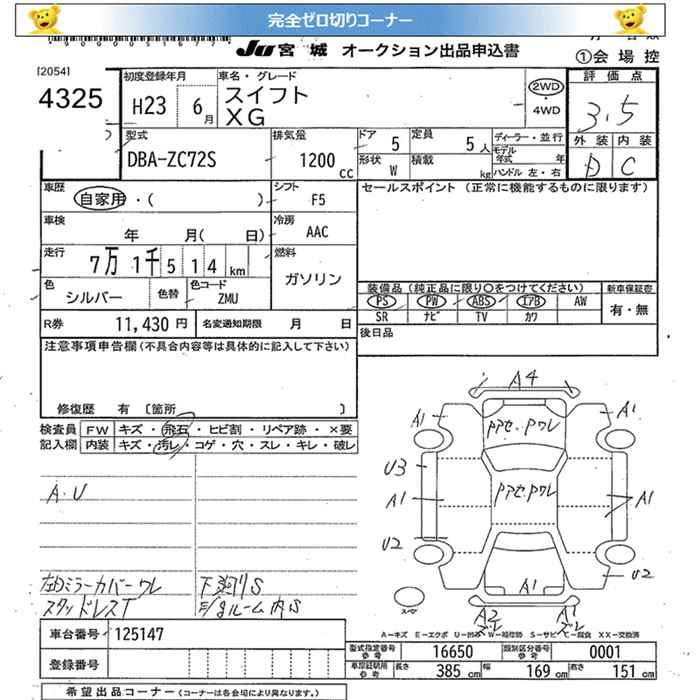 完全ゼロ切りコーナー
JU 宮城 オークション出品申込書
①会場控
[2054]
4325
初度登録年月 H23 6月
車名・グレード スイフト
XG
2WD・4WD
評価点 3.5
外装 D 内装 C
型式 DBA-ZC72S
排気量 1200cc
ドア 5
定員 5人
形状 W
積載 kg
ディーラー・並行
モデル年式 年
ハンドル 左・右
車歴 自家用・( )
シフト F5
セールスポイント (正常に機能するものに限ります)
車検 年 月( 日)
冷房 AAC
走行 7万1千514km
燃料 ガソリン
色 シルバー 色替
色コード ZMU
装備品(純正品に限り○をつけてください)
PS PW ABS エアB AW
SR ナビ TV カワ
新車保証書 有・無
R券 11,430円
名変通知期限 月 日
後日品
注意事項申告欄(不具合内容等は具体的に記入して下さい)
修復歴 有 〔箇所 〕
検査員記入欄
FW キズ・飛石・ヒビ割・リペア跡・×要
内装 キズ・汚レ・コゲ・穴・スレ・キレ・破レ
A.U
左右ミラーカバーワレ
スタッドレスT
下廻りS
E/gルーム内S
A4
A1
A1
Pアセ.Pワレ
U3
A1
Pアセ.Pワレ
A1
U2
U2
A1
A2
ズレ
A1
ズレ
スペア
A―キズ E―エクボ U―凹み W―補修跡 S―サビ C―腐食 XX―交換済
車台番号 125147
登録番号
型式指定番号参考 16650
類別区分番号参考 0001
車庫証明用参考 長さ 385cm 幅 169cm 高さ 151cm
希望出品コーナー(コーナーは各会場により異なります。)